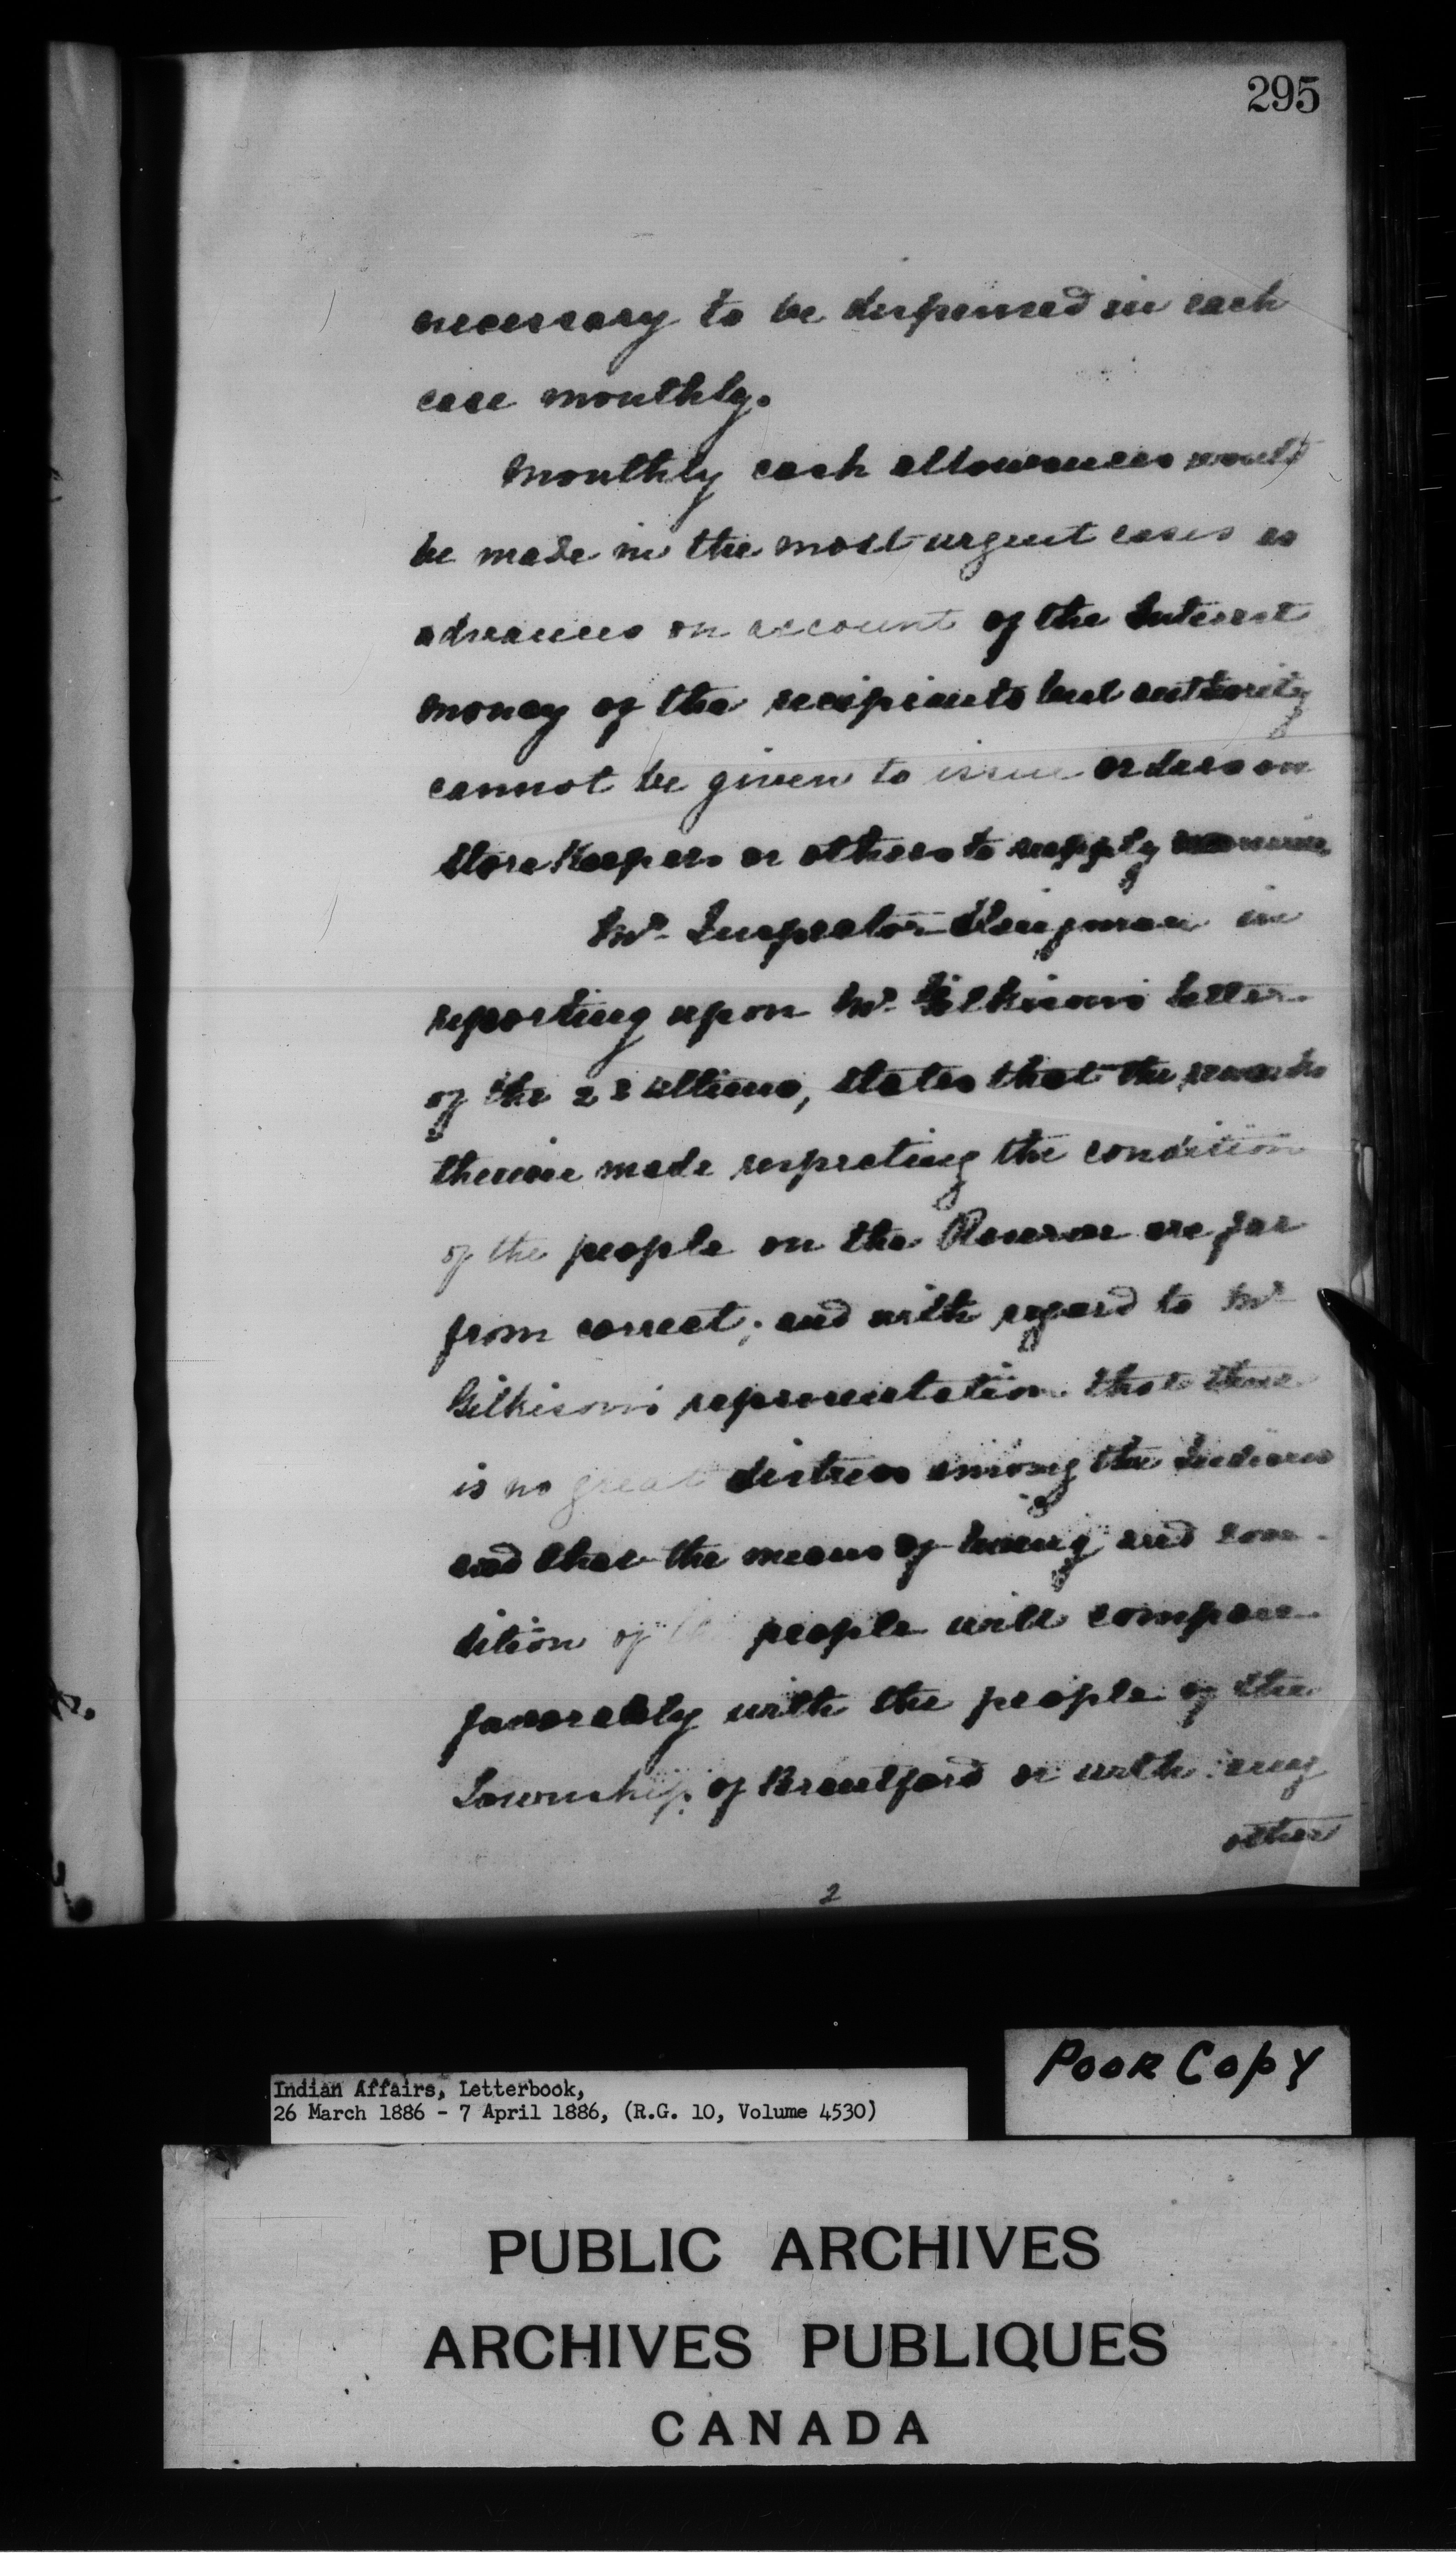 295
necessary to be dispensed in each
case monthly.
Monthly cash allowances would
be made in the most urgent cases as
advances on account of the Interest
money of the recipients but authority
cannot be given to issue orders on
Store Keepers or others to supply
Mr. Inspector Dingman in
reporting upon Mr. Gilkison's letter
of the 23 ultimo, states that the remarks
therein made respecting the condition
of the people on the Reserve are far
from correct; and with regard to Mr
Gilkison's representation that there
is no great distress among the Indians
and that the means of living and con-
dition of the people will compare
favorably with the people of the
Township of Brantford or with any
other
2
Poor Copy
Indian Affairs, Letterbook,
26 March 1886 - 7 April 1886, (R.G. 10, Volume 4530)
PUBLIC ARCHIVES
ARCHIVES PUBLIQUES
CANADA